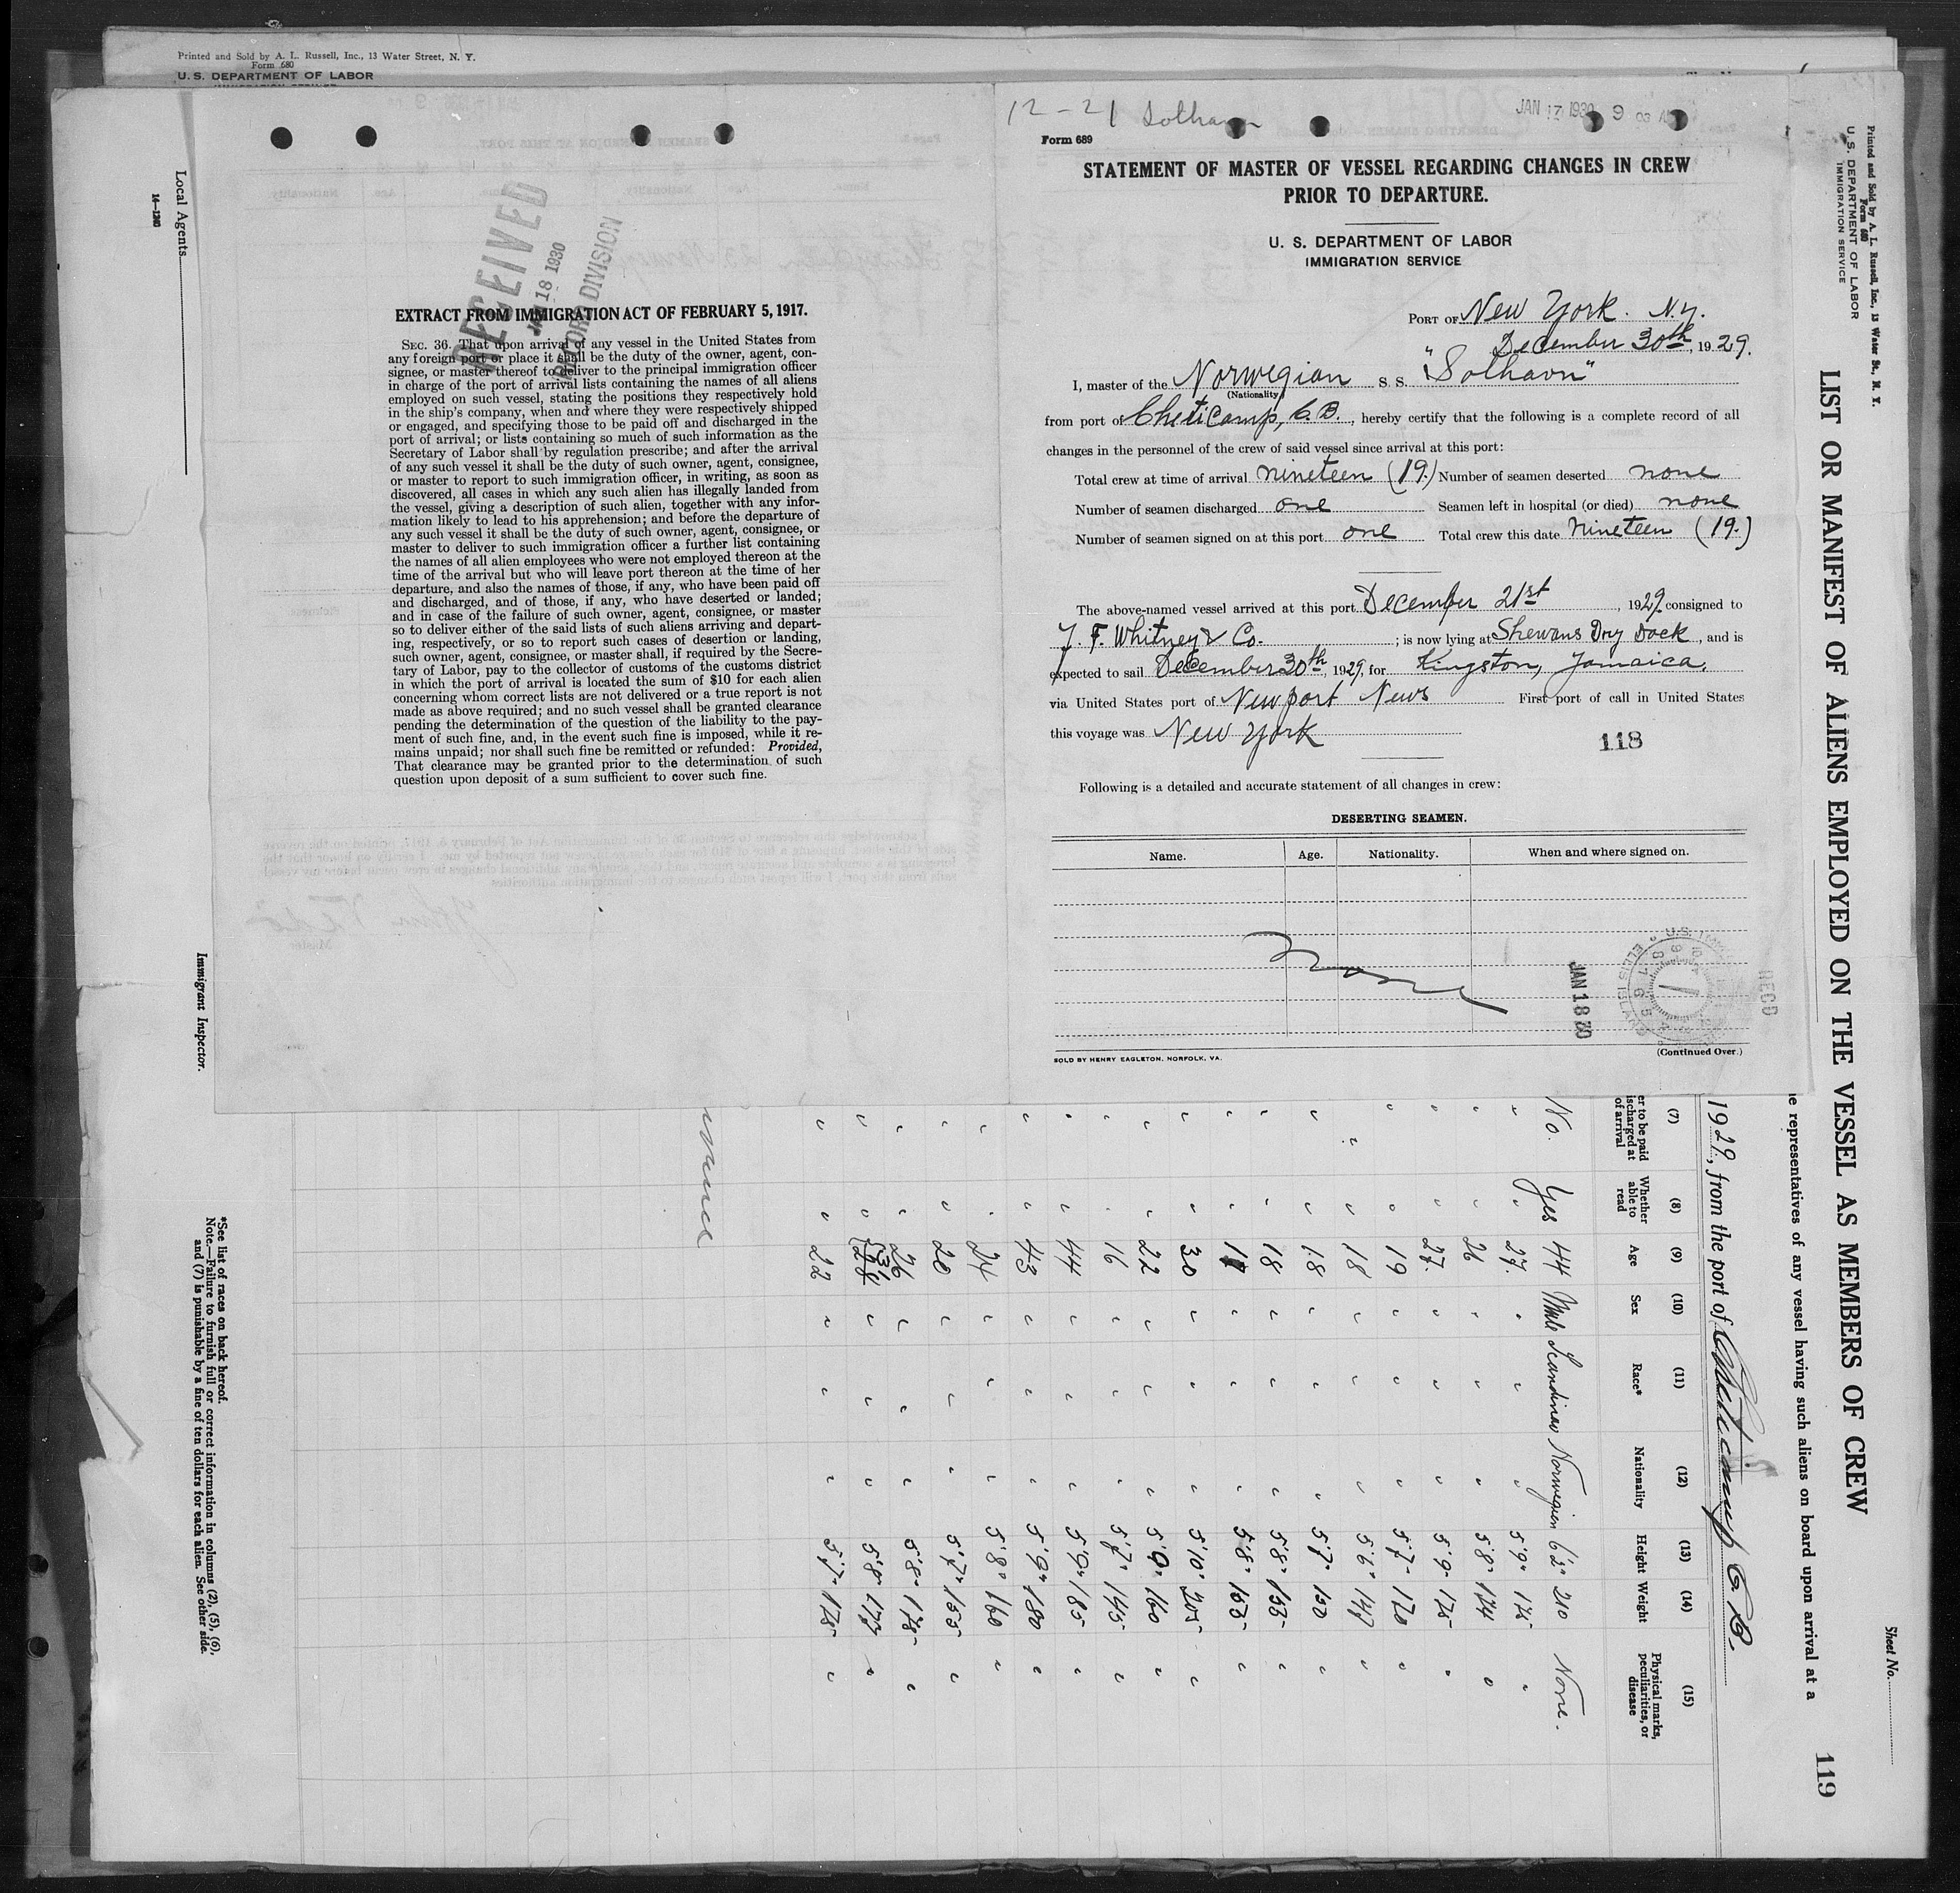 Printed and Sold by A. L. Russell, Inc., 13 Water Street, N. Y.
Form 680
U. S. DEPARTMENT OF LABOR
Local Agents
14—1240
Immigrant Inspector.
RECEIVED
JAN 18 1930
RECORD DIVISION
EXTRACT FROM IMMIGRATION ACT OF FEBRUARY 5, 1917.
SEC. 36. That upon arrival of any vessel in the United States from
any foreign port or place it shall be the duty of the owner, agent, con-
signee, or master thereof to deliver to the principal immigration officer
in charge of the port of arrival lists containing the names of all aliens
employed on such vessel, stating the positions they respectively hold
in the ship's company, when and where they were respectively shipped
or engaged, and specifying those to be paid off and discharged in the
port of arrival; or lists containing so much of such information as the
Secretary of Labor shall by regulation prescribe; and after the arrival
of any such vessel it shall be the duty of such owner, agent, consignee,
or master to report to such immigration officer, in writing, as soon as
discovered, all cases in which any such alien has illegally landed from
the vessel, giving a description of such alien, together with any infor-
mation likely to lead to his apprehension; and before the departure of
any such vessel it shall be the duty of such owner, agent, consignee, or
master to deliver to such immigration officer a further list containing
the names of all alien employees who were not employed thereon at the
time of the arrival but who will leave port thereon at the time of her
departure, and also the names of those, if any, who have been paid off
and discharged, and of those, if any, who have deserted or landed;
and in case of the failure of such owner, agent, consignee, or master
so to deliver either of the said lists of such aliens arriving and depart-
ing, respectively, or so to report such cases of desertion or landing,
such owner, agent, consignee, or master shall, if required by the Secre-
tary of Labor, pay to the collector of customs of the customs district
in which the port of arrival is located the sum of $10 for each alien
concerning whom correct lists are not delivered or a true report is not
made as above required; and no such vessel shall be granted clearance
pending the determination of the question of the liability to the pay-
ment of such fine, and, in the event such fine is imposed, while it re-
mains unpaid; nor shall such fine be remitted or refunded: Provided,
That clearance may be granted prior to the determination of such
question upon deposit of a sum sufficient to cover such fine.
12-21 Solhavn
JAN 17 1930 9 03 AM
Form 689
STATEMENT OF MASTER OF VESSEL REGARDING CHANGES IN CREW
PRIOR TO DEPARTURE.
U. S. DEPARTMENT OF LABOR
IMMIGRATION SERVICE
PORT OF New York. N.Y.
December 30th, 1929.
I, master of the Norwegian S. S. "Solhavn"
(Nationality)
from port of Cheticamp, C.B., hereby certify that the following is a complete record of all
changes in the personnel of the crew of said vessel since arrival at this port:
Total crew at time of arrival nineteen (19.) Number of seamen deserted none
Number of seamen discharged one Seamen left in hospital (or died) none
Number of seamen signed on at this port one Total crew this date Nineteen (19.)
The above-named vessel arrived at this port December 21st, 1929. consigned to
J. F. Whitney & Co. ; is now lying at Shewans Dry Dock, and is
expected to sail December 30th, 1929, for Kingston, Jamaica.
via United States port of Newport News First port of call in United States
this voyage was New York
118
Following is a detailed and accurate statement of all changes in crew:
DESERTING SEAMEN.
Name. Age. Nationality. When and where signed on.
None
JAN 18 30
RECD
U.S. IMM
ELLIS ISLAND
SOLD BY HENRY EAGLETON, NORFOLK, VA.
(Continued Over.)
Printed and Sold by A. L. Russell, Inc., 13 Water St., N. Y.
Form 680
U. S. DEPARTMENT OF LABOR
IMMIGRATION SERVICE
LIST OR MANIFEST OF ALIENS EMPLOYED ON THE VESSEL AS MEMBERS OF CREW
Sheet No.
119
e representatives of any vessel having such aliens on board upon arrival at a
1929, from the port of Cheticamp C.B.
(7) (8) (9) (10) (11) (12) (13) (14) (15)
er to be paid
ischarged at
of arrival
Whether
able to
read
Age
Sex
Race*
Nationality
Height
Weight
Physical marks,
peculiarities, or
disease
No. Yes 44 Male Scandinav Norwegian 6'2" 210 None.
" " 27. " " " 5'9" 175 "
" " 26 " " " 5'8" 174 "
" " 27. " " " 5'9" 175 "
" " 19 " " " 5'7" 170 "
" " 18 " " " 5'6" 147 "
" " 18 " " " 5'7" 150 "
" " 18 " " " 5'8" 155 "
" " " " " 5'8" 155 "
" " 30 " " " 5'10" 205 "
" " 22 " " " 5'9" 160 "
" " 16 " " " 5'7" 145 "
" " 44 " " " 5'9" 185 "
" " 43 " " " 5'9" 180 "
" " 24 " " " 5'8" 160 "
" " 20 " " " 5'7" 155 "
" " 26 " " " 5'8" 178 "
" " " " " 5'8" "
" " 22 " " " 5'7" 178 "
*See list of races on back hereof.
Note.—Failure to furnish full or correct information in columns (2), (5), (6),
and (7) is punishable by a fine of ten dollars for each alien. See other side.